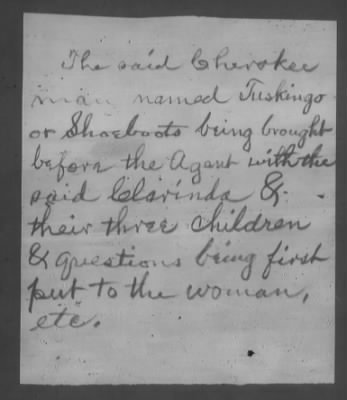 The said Cherokee
man named Tuskingo
or Shoeboots being brought
before the Agent with the
said Clarinda &
their three children
& questions being first
put to the woman,
etc.